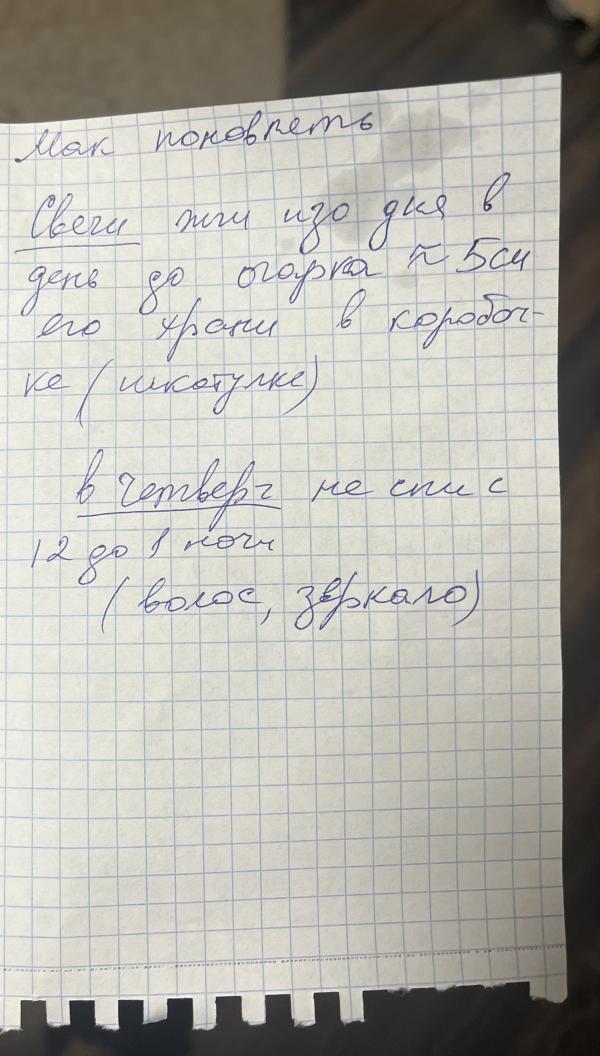 Мак поновлеть
Свечи жги изо дня в
день до огарка ≈ 5см
его храни в коробоч-
ке (шкатулке)
в четверг не спи с
12 до 1 ночи
(волос, зеркало)